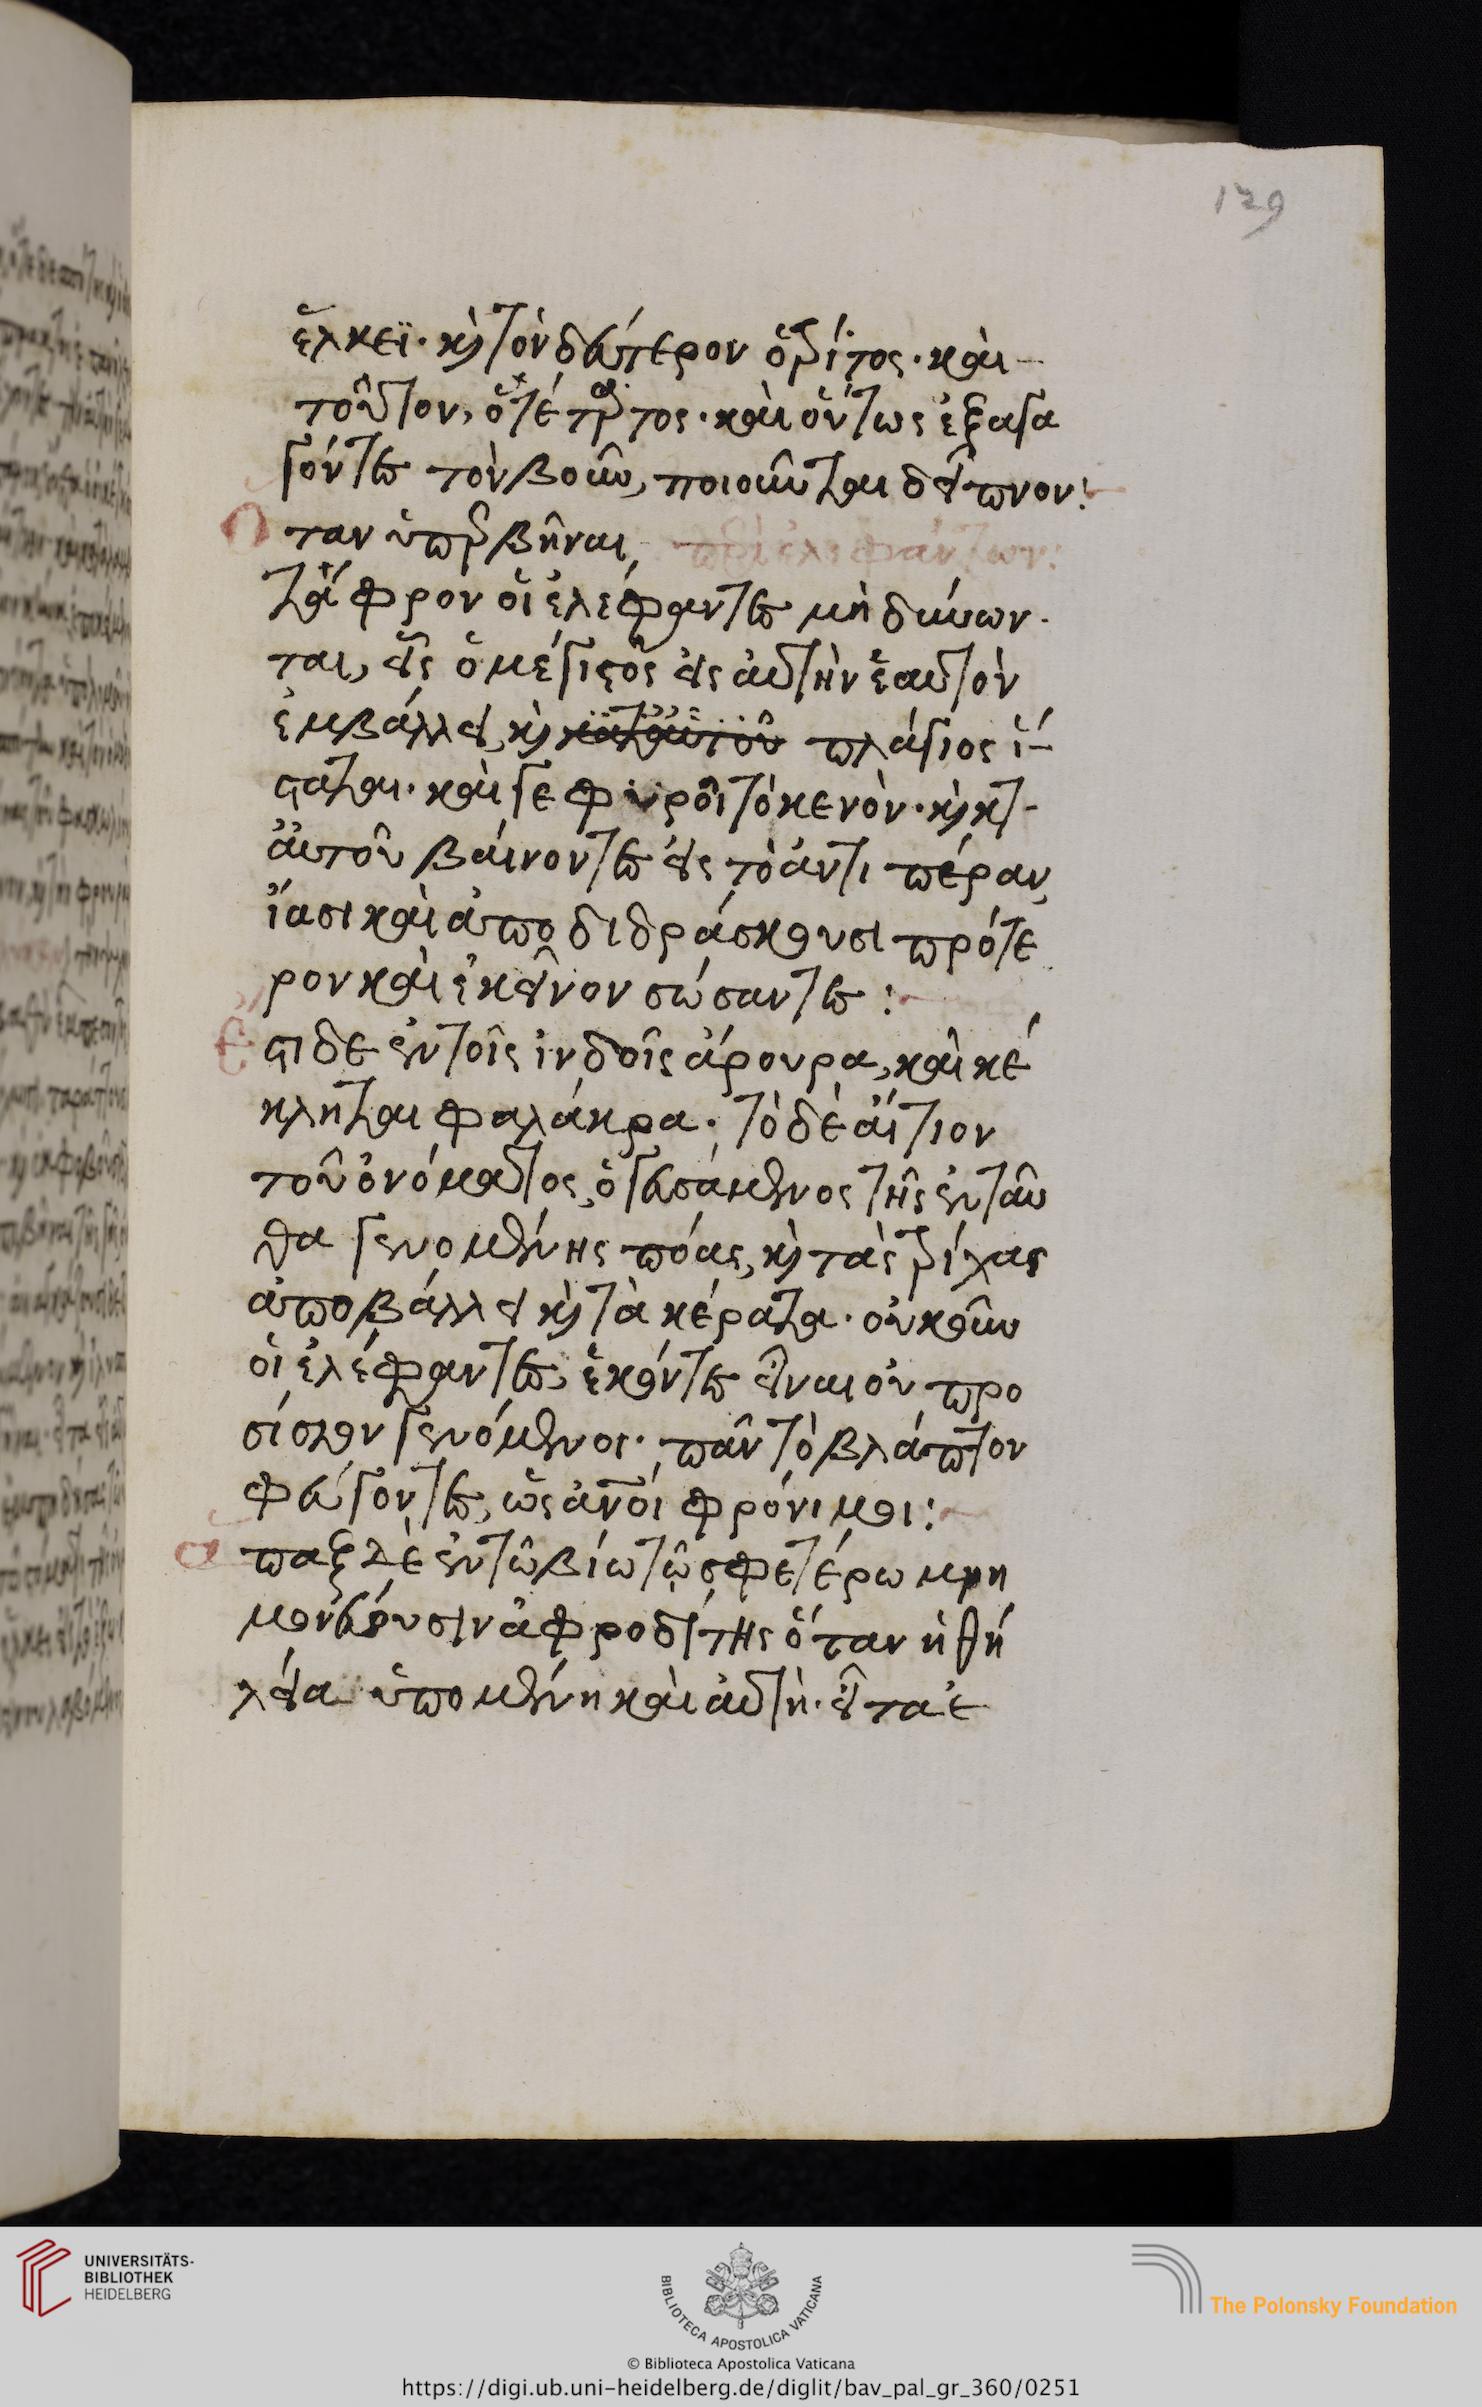 179
ἕλκεϊ· κ̀ τὸν δεύτερον ὁ τρίτος· καὶ
τοῦτον, ὁ τέταρτος· καὶ οὕτως ἐξαγα
γόντες τὸν βοῦν, ποιοῦνται δεῖπνον:
Ὅταν ὑπερβῆναι περὶ ἐλεφάντων:
τάφρον οἱ ἐλέφαντες μὴ δύνων
ται, εἷς ὁ μέγιστος εἰς αὐτὴν ἑαυτὸν
ἐμβάλλει, κ̀ πλάγιος ἵ
σταται· καὶ γεφυροῖ τὸ κενὸν· κ̀ κτ
αὐτοῦ βαίνοντες εἰς τὸ ἀντιπέραν,
ἴασι καὶ ἀποδιδράσκουσι πρότε
ρον καὶ ἐκεῖνον σώσαντες:
Ἔστι δὲ ἐν τοῖς ἰνδοῖς ἄρουρα, καὶ κέ
κληται φαλάκρα· τὸ δὲ αἴτιον
τοῦ ὀνόματος, ὁ γευσάμενος τῆς ἐνταῦ
θα γενομένης πόας, κ̀ τὰς τρίχας
ἀποβάλλει κ̀ τὰ κέρατα· οὐκοῦν
οἱ ἐλέφαντες, ἑκόντες εἶναι οὐ προ
σίσιν γενόμενοι· πᾶν τὸ βλάπτον
φεύγοντες, ὡς ἀνοί φρόνιμοι:
Ἅπαξ δὲ ἐν τῶ βίω τῶ σφετέρω μνη
μονεύουσιν ἀφροδίτης ὅταν ἡ θή
λεια ὑπομένη καὶ αὐτὴ· εἶτα ἐ
UNIVERSITÄTS-
BIBLIOTHEK
HEIDELBERG
BIBLIOTECA APOSTOLICA VATICANA
The Polonsky Foundation
© Biblioteca Apostolica Vaticana
https://digi.ub.uni-heidelberg.de/diglit/bav_pal_gr_360/0251